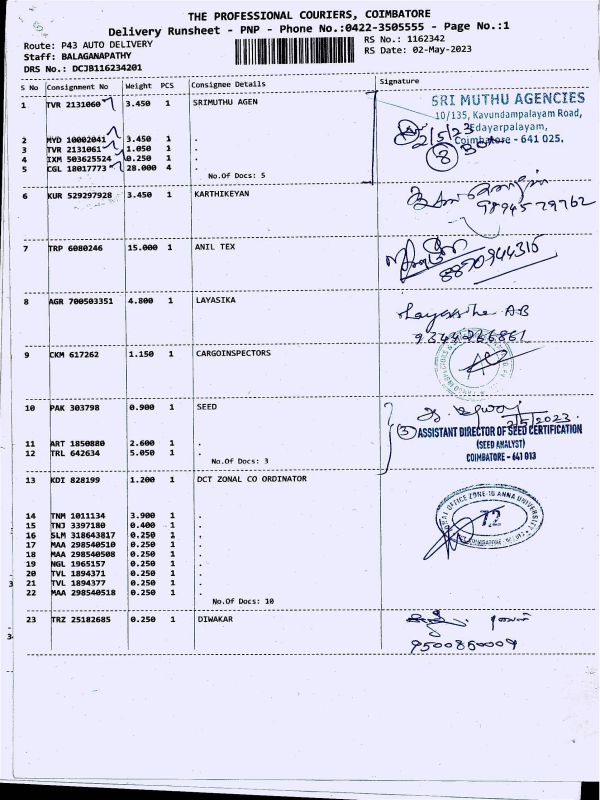 THE PROFESSIONAL COURIERS, COIMBATORE
Delivery Runsheet - PNP - Phone No.:0422-3505555 - Page No.:1
Route: P43 AUTO DELIVERY
Staff: BALAGANAPATHY
DRS No.: DCJB116234201
RS No.: 1162342
RS Date: 02-May-2023
S No Consignment No Weight PCS Consignee Details Signature
1 TVR 2131060 3.450 1 SRIMUTHU AGEN
SRI MUTHU AGENCIES
10/135, Kavundampalayam Road,
Edayarpalayam,
Coimbatore - 641 025.
2/5/23
8
2 MYD 10002041 3.450 1 .
3 TVR 2131061 1.050 1 .
4 IXM 503625524 0.250 1 .
5 CGL 18017773 28.000 4 .
No.Of Docs: 5
6 KUR 529297928 3.450 1 KARTHIKEYAN
9894579762
7 TRP 6080246 15.000 1 ANIL TEX
8870944316
8 AGR 700503351 4.800 1 LAYASIKA
9 CKM 617262 1.150 1 CARGOINSPECTORS
10 PAK 303798 0.900 1 SEED
2/5/2023
3 ASSISTANT DIRECTOR OF SEED CERTIFICATION
(SEED ANALYST)
COIMBATORE - 641 013
11 ART 1850880 2.600 1 .
12 TRL 642634 5.050 1 .
No.Of Docs: 3
13 KDI 828199 1.200 1 DCT ZONAL CO ORDINATOR
14 TNM 1011134 3.900 1 .
15 TNJ 3397180 0.400 1 .
16 SLM 318643817 0.250 1 .
17 MAA 298540510 0.250 1 .
18 MAA 298540508 0.250 1 .
19 NGL 1965157 0.250 1 .
20 TVL 1894371 0.250 1 .
21 TVL 1894377 0.250 1 .
22 MAA 298540518 0.250 1 .
No.Of Docs: 10
OFFICE ZONE-10 ANNA UNIVERSITY
72
23 TRZ 25182685 0.250 1 DIWAKAR